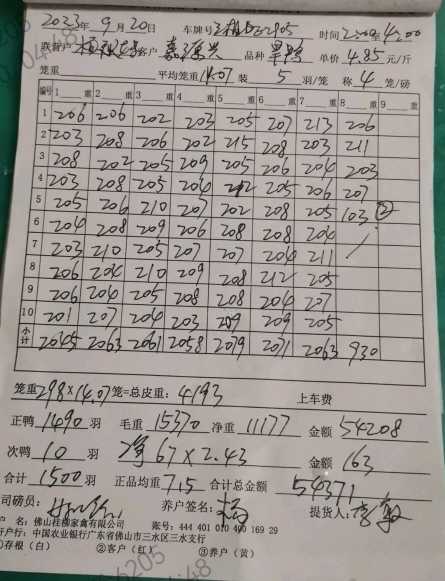 2023年9月20日 车牌号 2905 时间 4:00
联营户 客户 嘉 兴 品种 单价 4.85 元/斤
笼重 平均笼重 14.07 装 5 羽/笼 称 4 笼/磅
编号 1 重 2 重 3 重 4 重 5 重 6 重 7 重 8 重 9 重
1 206 206 202 203 205 207 213 206
2 203 208 206 202 215 208 203 211
3 208 202 205 209 205 206 204 203
4 203 208 205 204 202 205 206 207
5 205 206 210 207 202 208 205 103 ②
6 204 208 209 206 208 208 204
7 203 210 205 207 207 204 211
8 206 204 210 209 208 212 205
9 206 204 205 208 208 204 207
10 201 207 204 203 209 209 205
小计 2045 2063 2061 2058 2079 2071 2063 930
笼重 298×14.07 笼=总皮重: 4193 上车费
正鸭 1490 羽 毛重 15370 净重 11177 金额 54208
次鸭 10 羽 净 67×2.43 金额 163
合计 1500 羽 正品均重 7.5 合计总金额 54371
司磅员: 养户签名: 提货人:
户 名: 佛山桂柳家禽有限公司 账号: 444 401 010 400 169 29
开户行: 中国农业银行广东省佛山市三水区三水支行
①存根(白) ②客户(红) ③养户(黄)